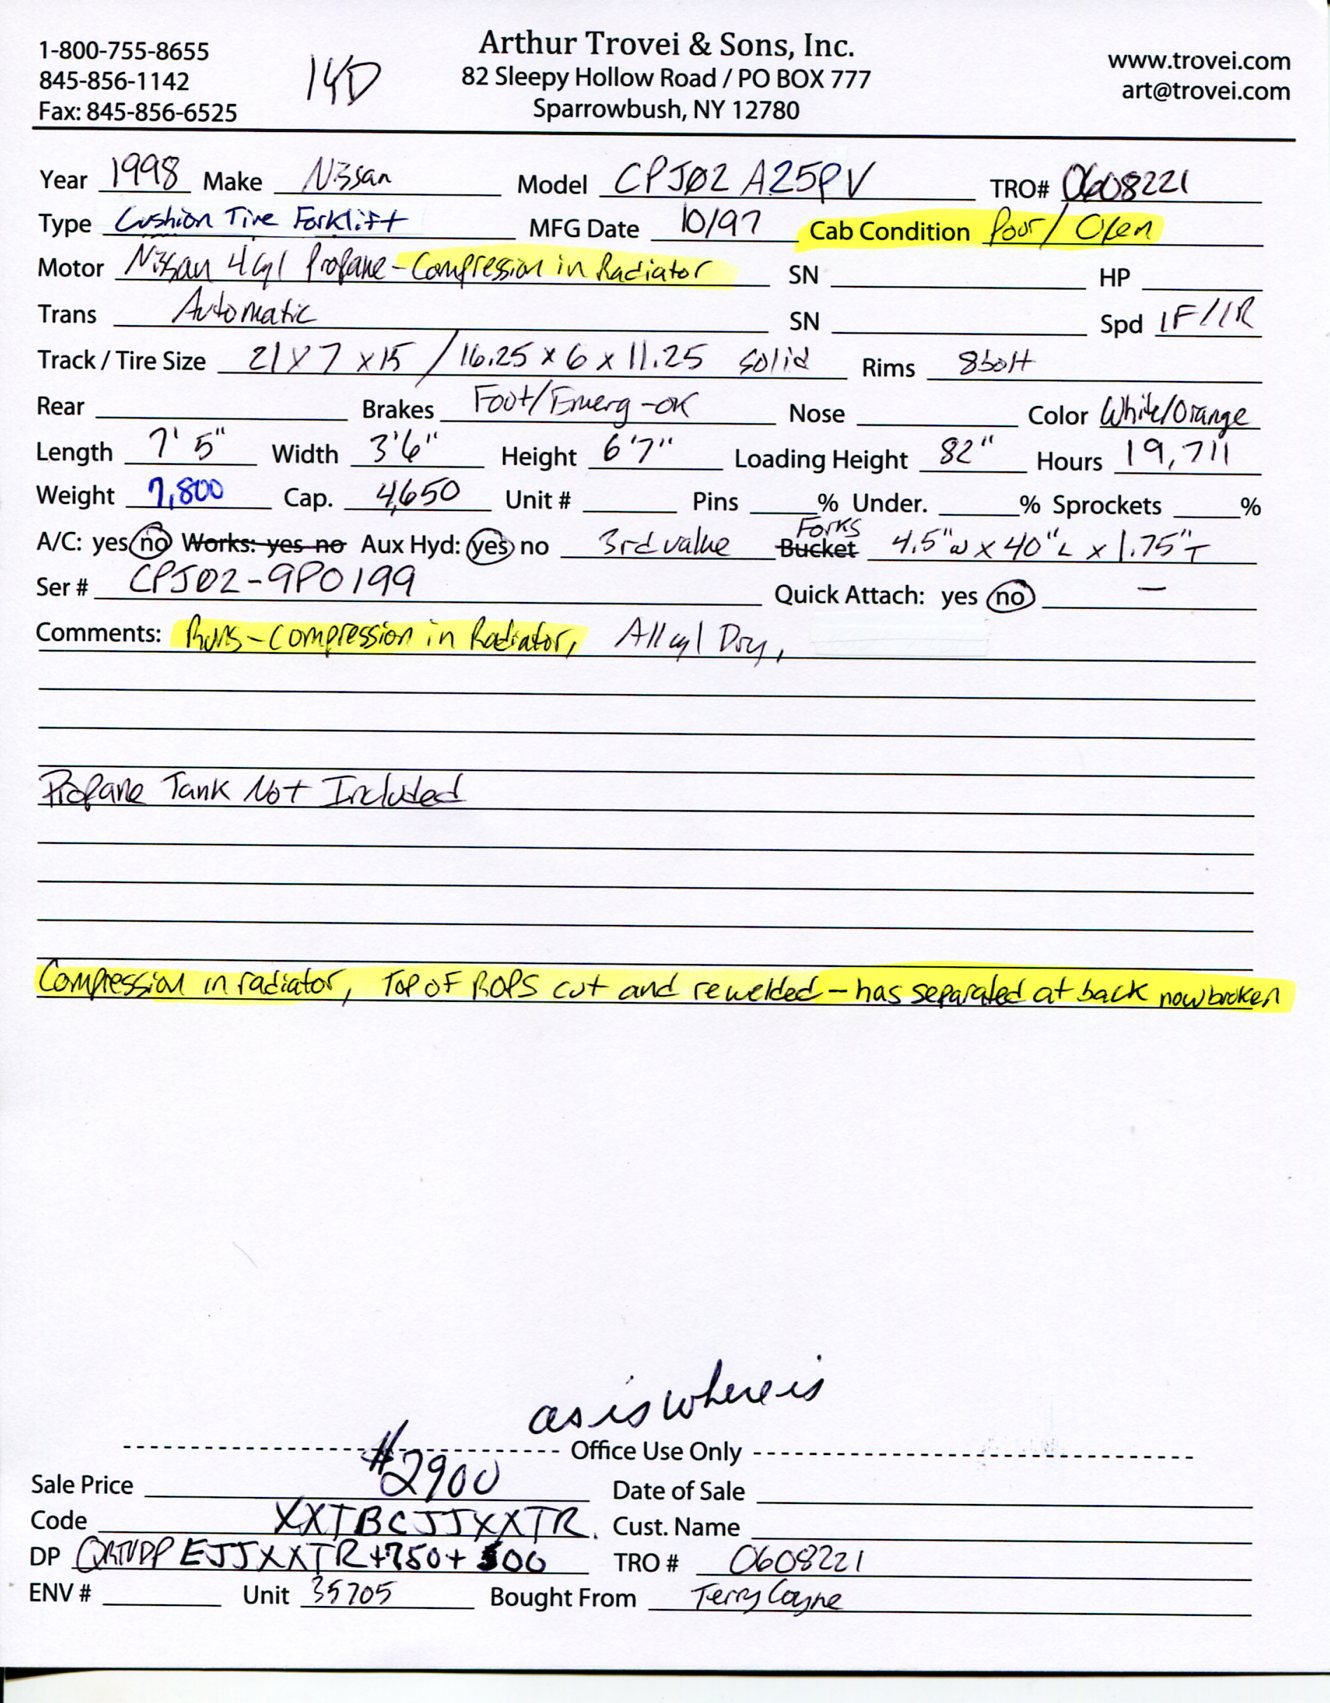 1-800-755-8655
845-856-1142
Fax: 845-856-6525
14D
Arthur Trovei & Sons, Inc.
82 Sleepy Hollow Road / PO BOX 777
Sparrowbush, NY 12780
www.trovei.com
art@trovei.com
Year 1998 Make Nissan Model CPJ02 A25PV TRO# 0608221
Type Cushion Tire Forklift MFG Date 10/97 Cab Condition Poor / Open
Motor Nissan 4cyl Propane - Compression in Radiator SN HP
Trans Automatic SN Spd 1F/1R
Track / Tire Size 21 x 7 x 15 / 16.25 x 6 x 11.25 solid Rims 8 bolt
Rear Brakes Foot/Emerg - OK Nose Color White/Orange
Length 7' 5" Width 3'6" Height 6'7" Loading Height 82" Hours 19,711
Weight 7,800 Cap. 4,650 Unit # Pins % Under. % Sprockets %
A/C: yes no Works: yes no Aux Hyd: yes no 3rd valve Bucket Forks 4.5" W x 40" L x 1.75" T
Ser # CPJ02-9P0199 Quick Attach: yes no —
Comments: Runs - Compression in Radiator, All cyl Dry,
Propane Tank Not Included
Compression in radiator, Top OF ROPS cut and rewelded - has separated at back now broken
as is where is
Office Use Only
Sale Price $2900 Date of Sale
Code XXTBCJJXXTR. Cust. Name
DP EJJXXTR+750+500 TRO # 0608221
ENV # Unit 35705 Bought From Terry Coyne